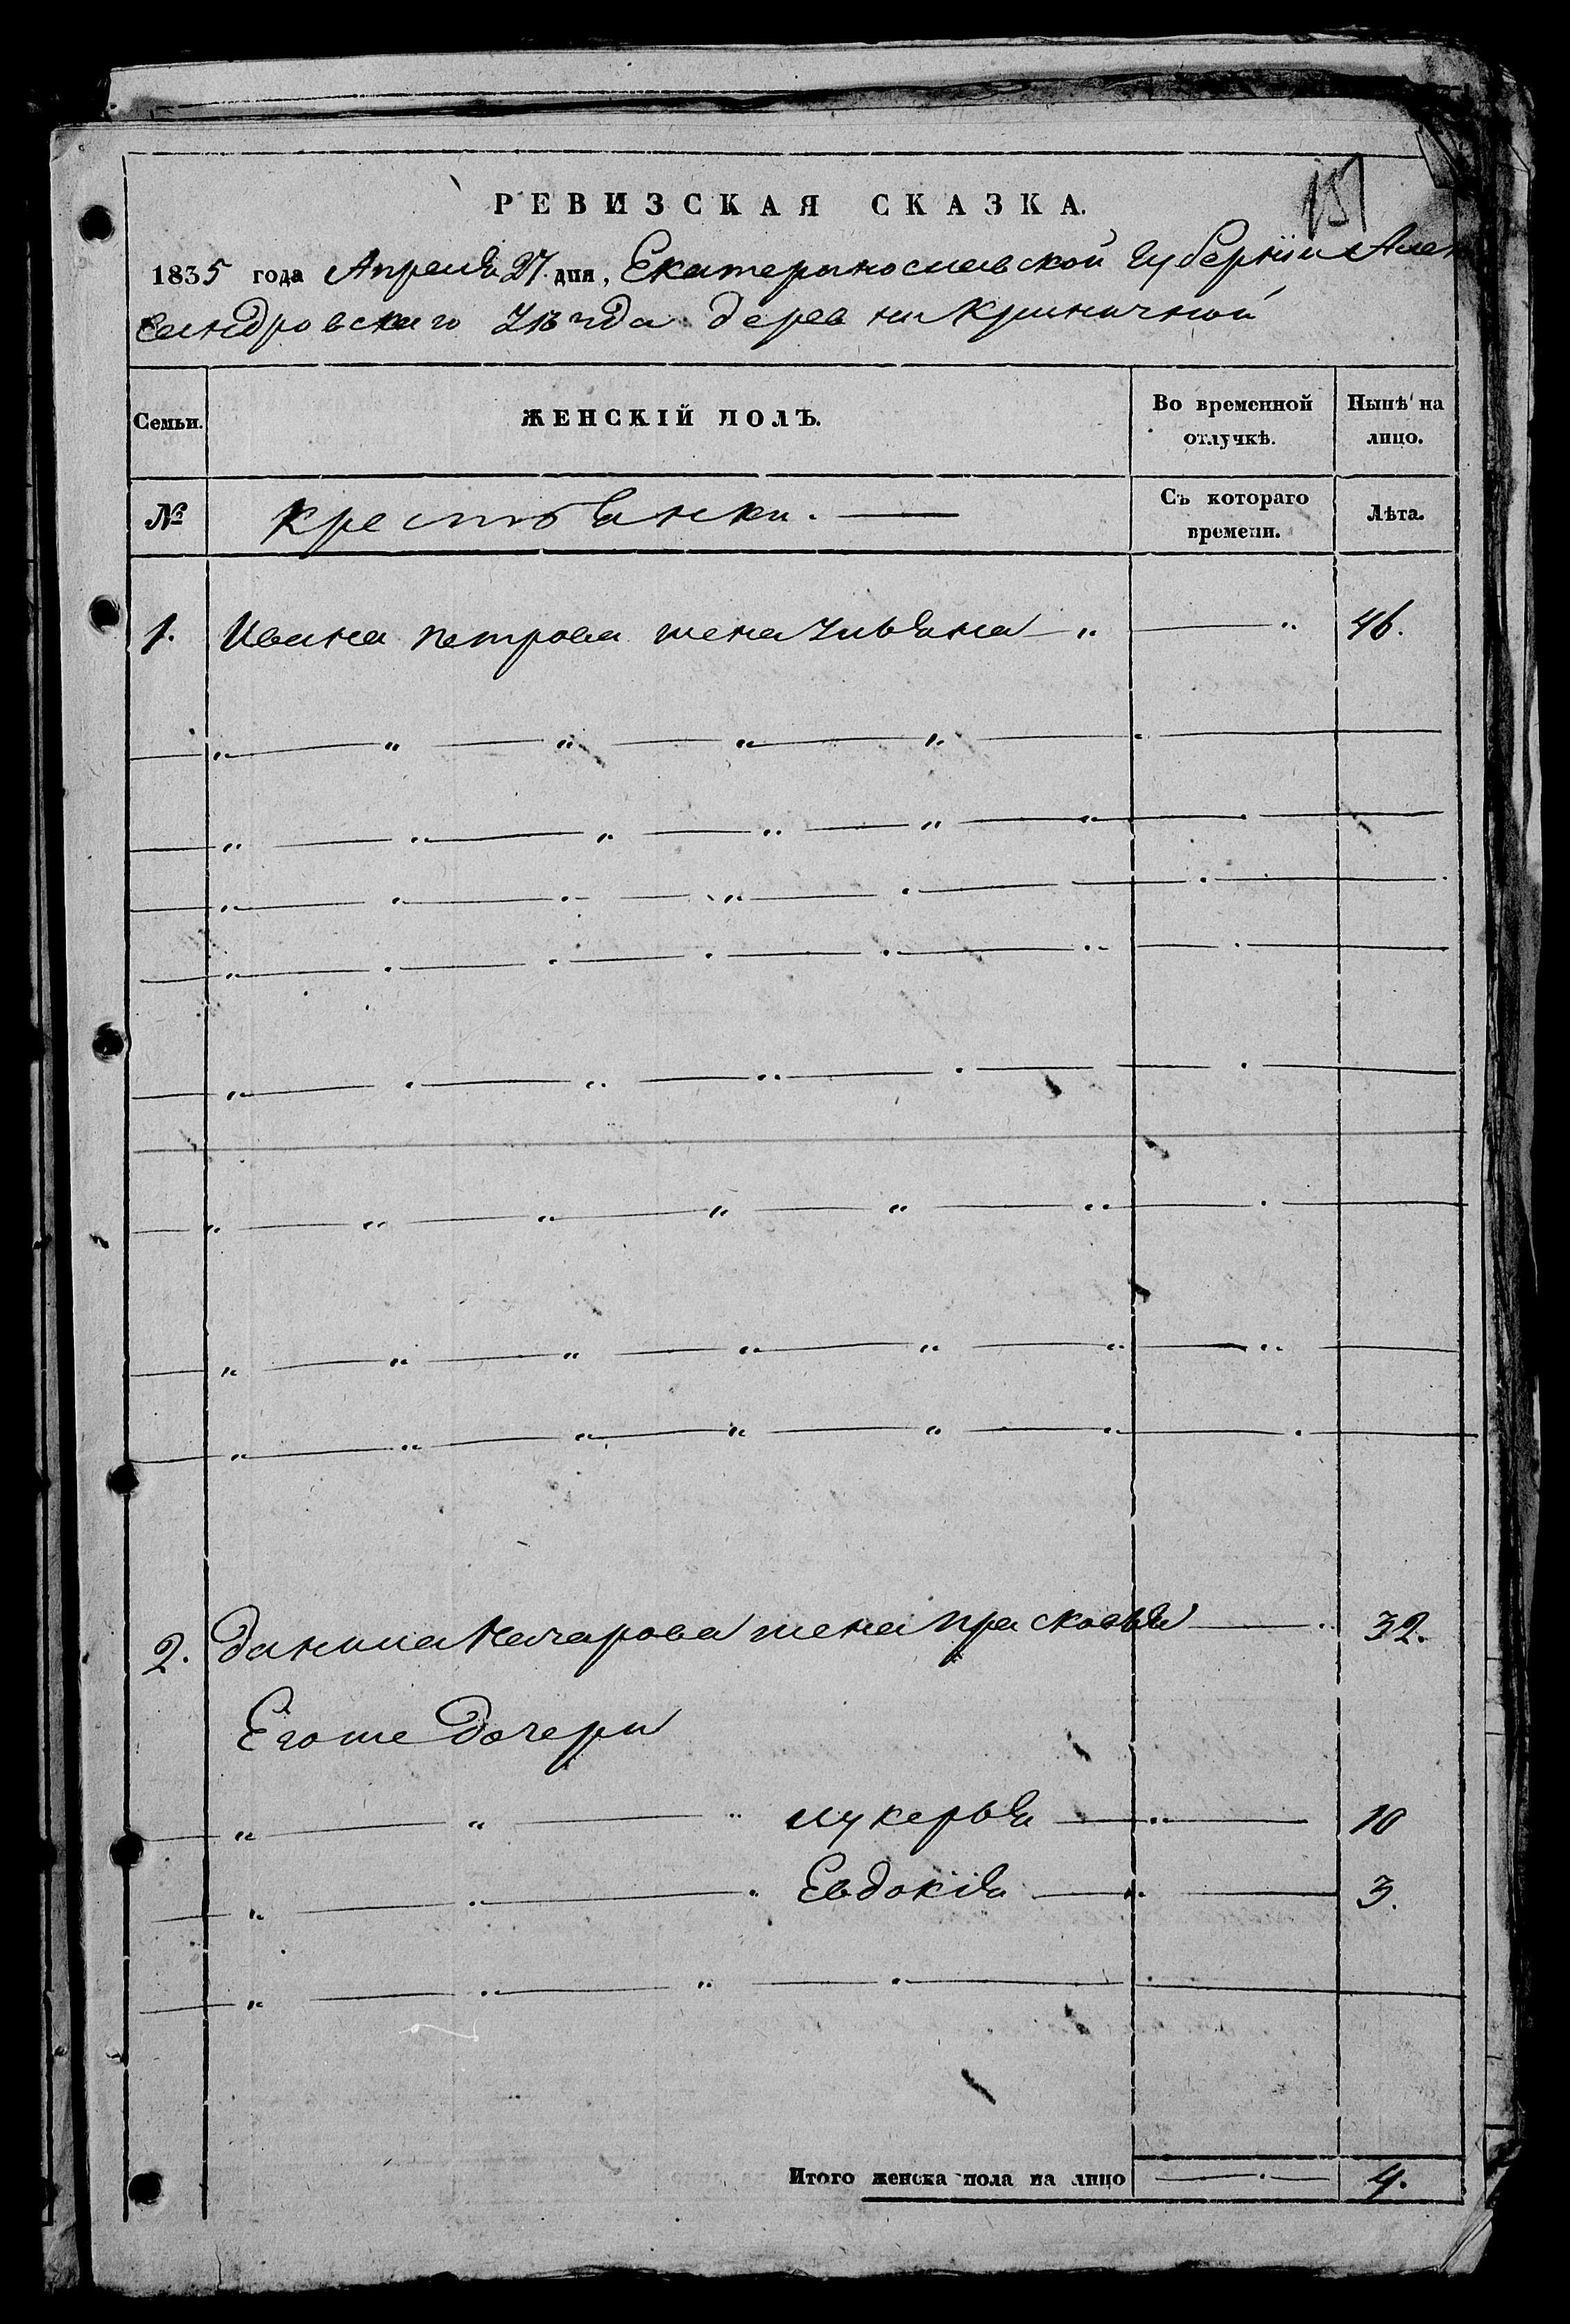 151
РЕВИЗСКАЯ СКАЗКА.
1835 года Апреля 27 дня, Екатериносиавской Губерніи Алек
сандровскаго Уѣзда деревни Криничной
Семьи. ЖЕНСКІЙ ПОЛЪ. Во временной отлучкѣ. Нынѣ на лицо.
№ крестьянки. Съ котораго времени. Лѣта.
1. Ивана Петрова жена Ульяна 46.
2. Данила жена Прасковья 32.
Егоже Дочери
лукерья 10
Евдокія 3.
Итого женска пола на лицо 4.